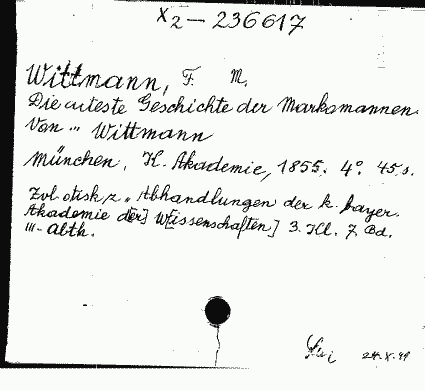 X2-236617
Wittmann, F. M.
Die aeteste Geschichte der Marksmannen.
Von ... Wittmann
München, K. Akademie, 1855. 4°. 45 s.
Zvl. otisk z "Abhandlungen der k. bayer.
Akademie d[er] W[issenschaften] 3. Kl. 7. Bd.
III-Abth.
24.X.49